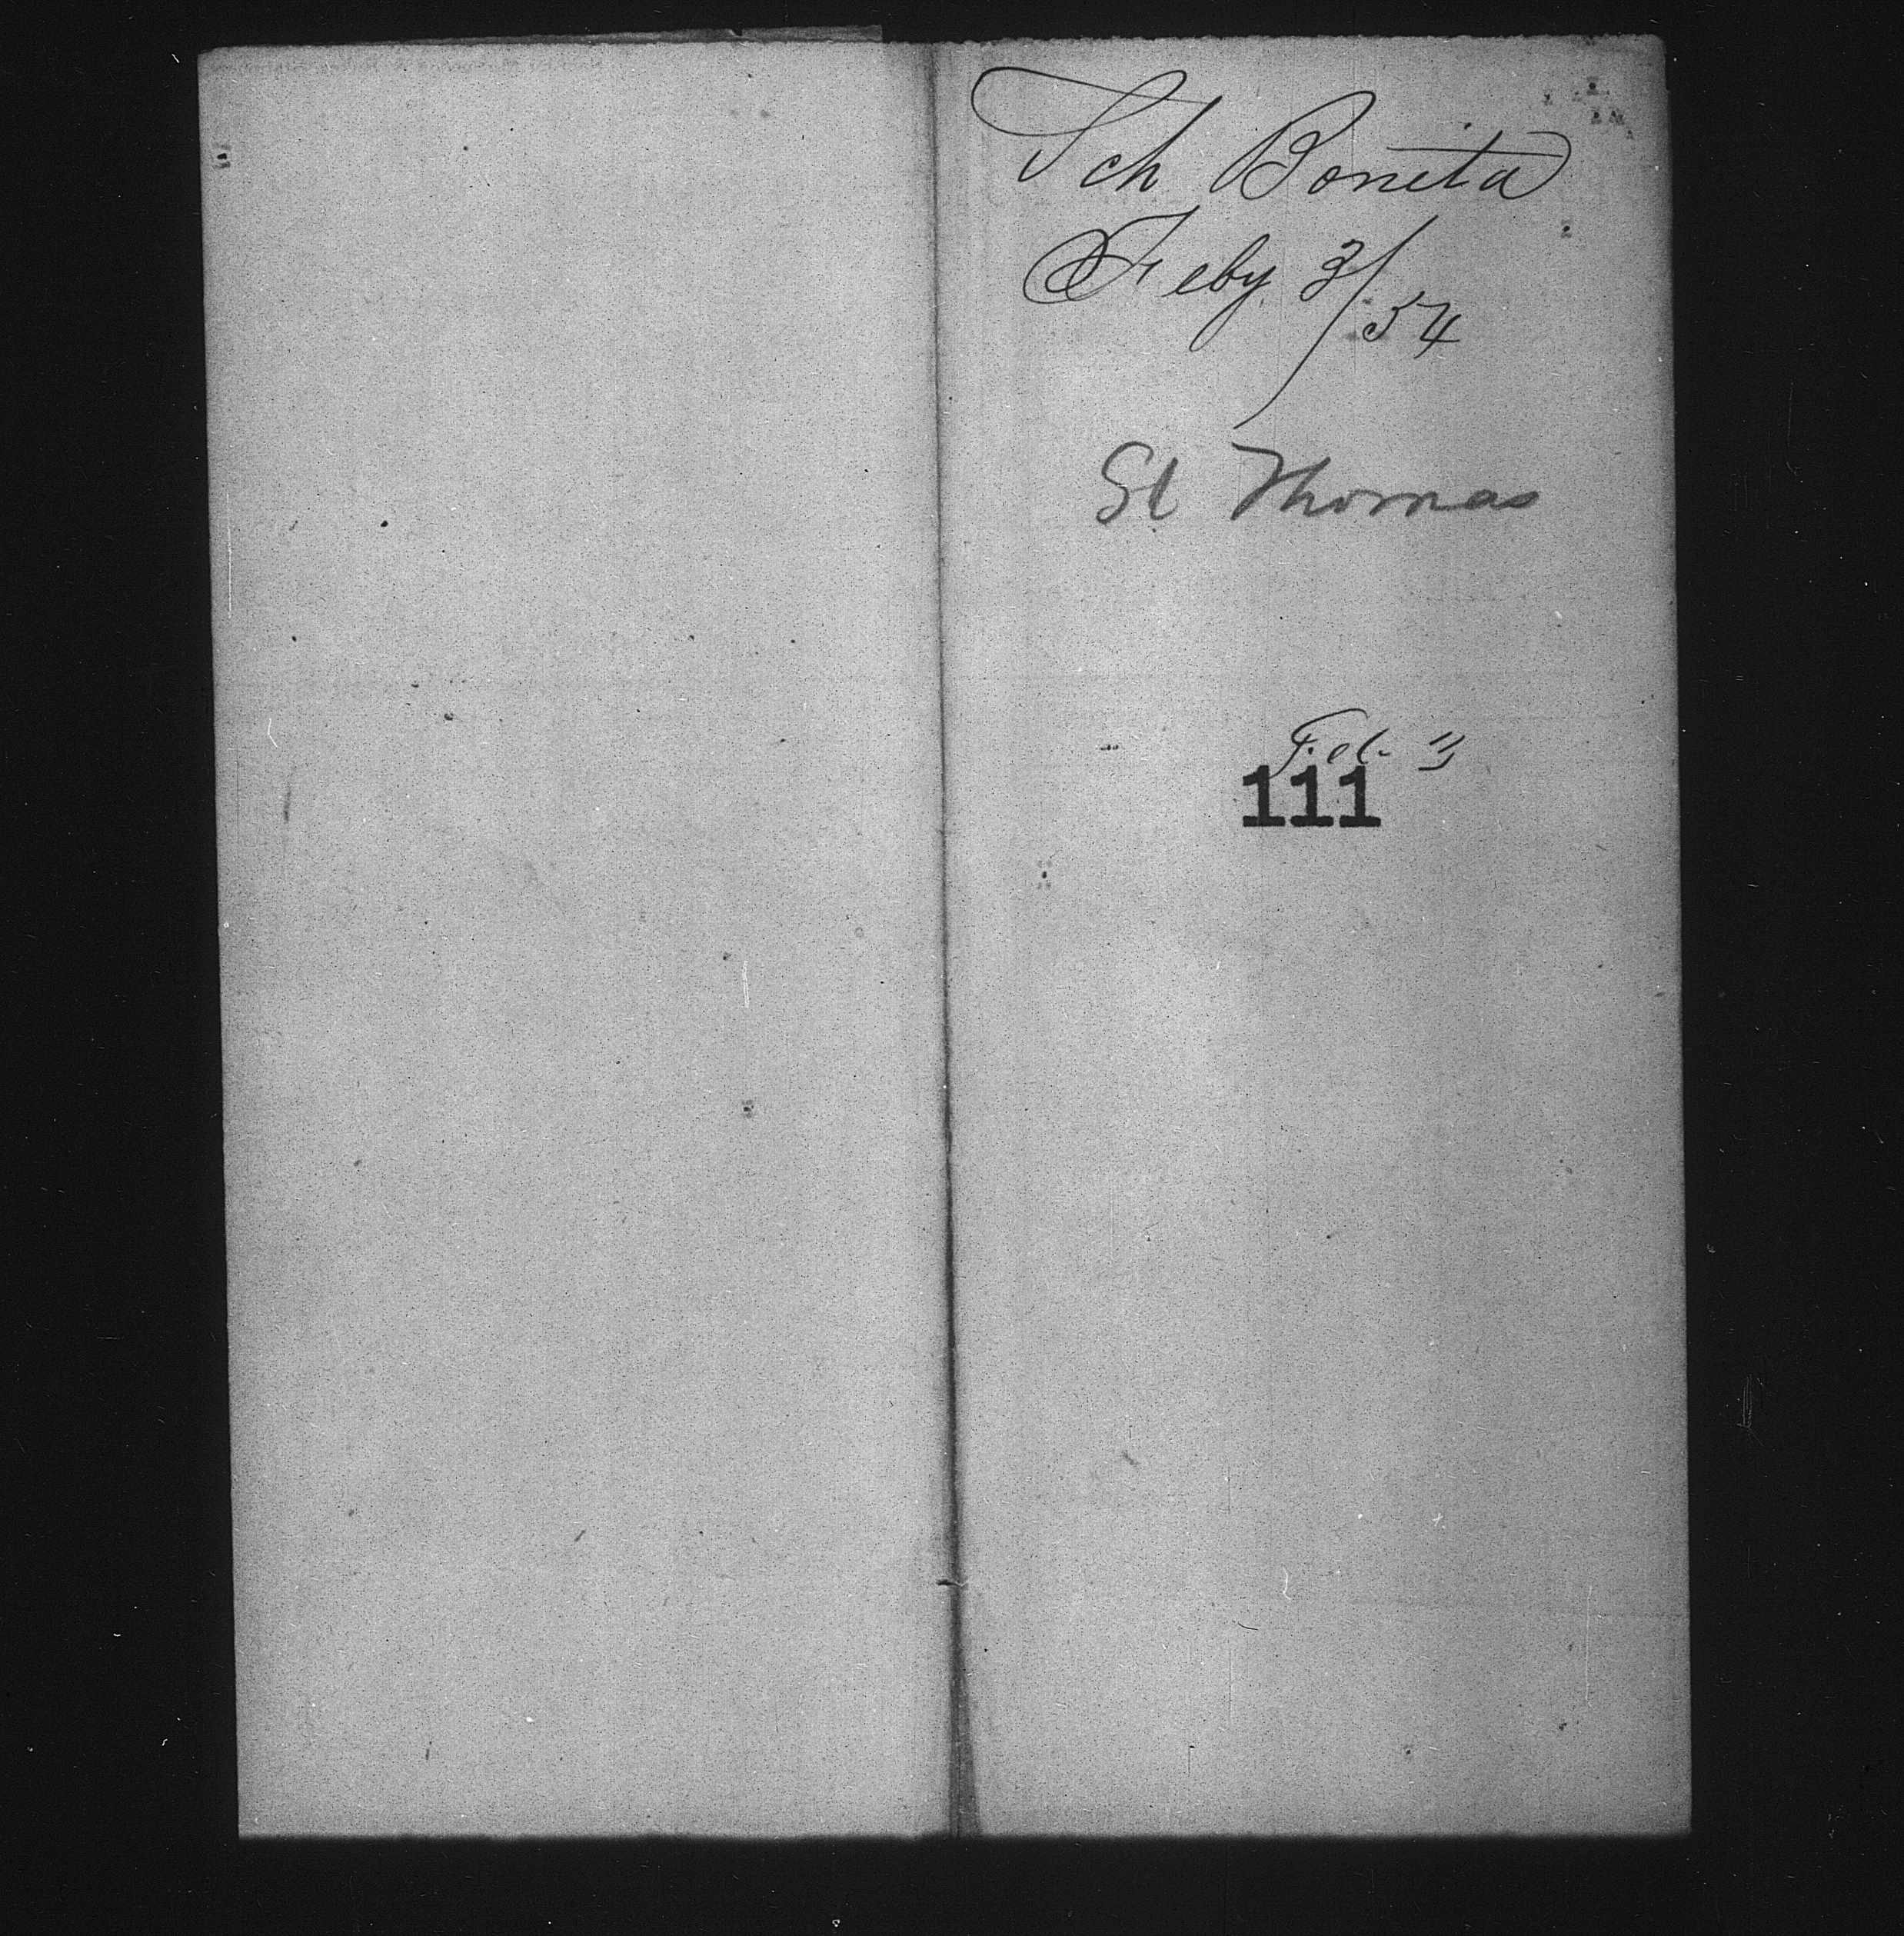 Sch Bonita
Feby 3/54
St Thomas
Feb 3
111